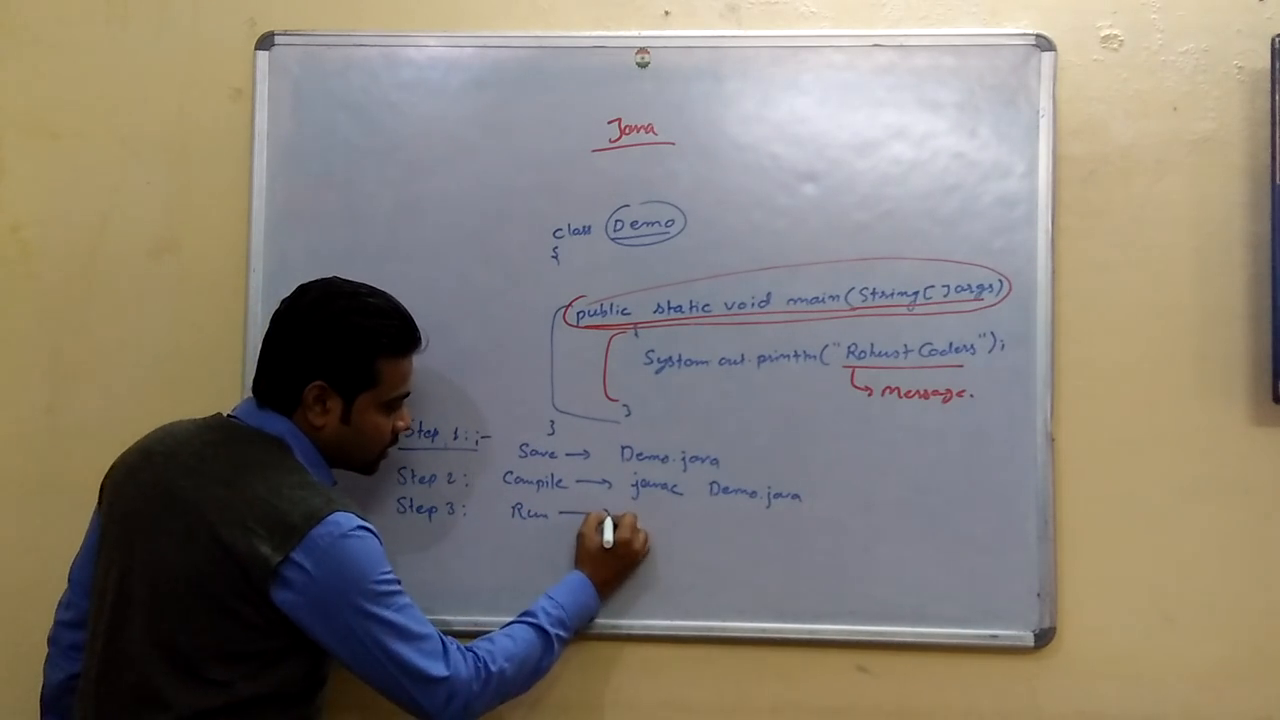 Java
class Demo
{
public static void main(String[]args)
{
System.out.println("Robust Coders");
Message.
}
}
Step 1:;-
Save → Demo.java
Step 2: Compile → javac Demo.java
Step 3: Run →